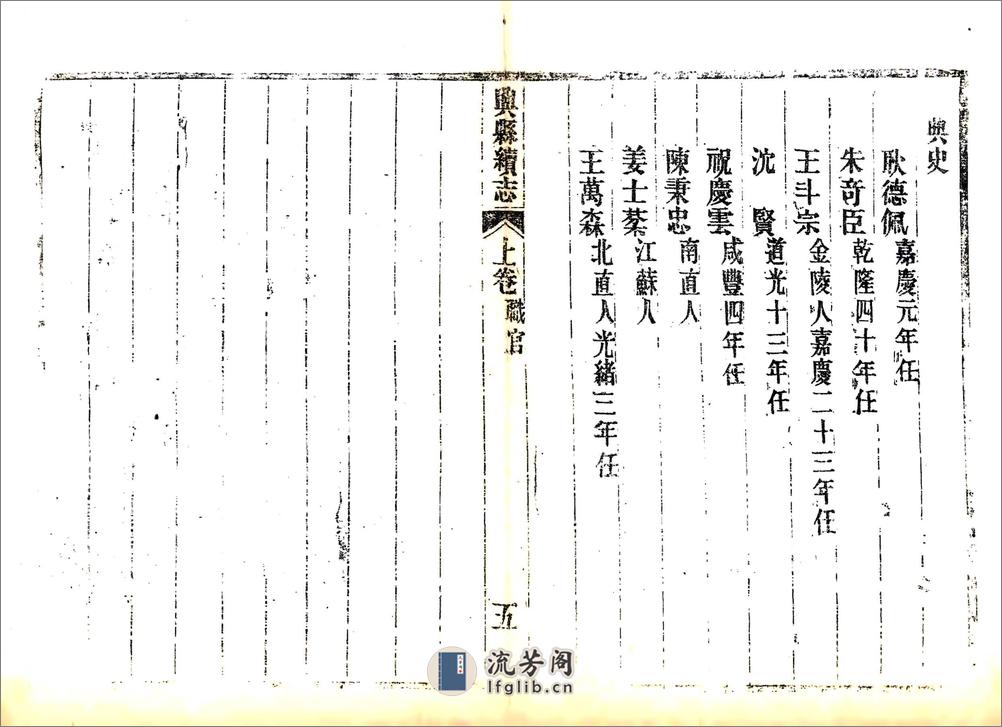 典史
耿德佩 嘉慶元年任
朱竒臣 乾隆四十年任
王斗宗 金陵人嘉慶二十三年任
沈賢 道光十三年任
祝慶雲 咸豐四年任
陳秉忠 南直人
姜士棻 江蘇人
王萬森 北直人光緒三年任
興縣續志 上卷 職官 五
流芳阁
lfglib.cn